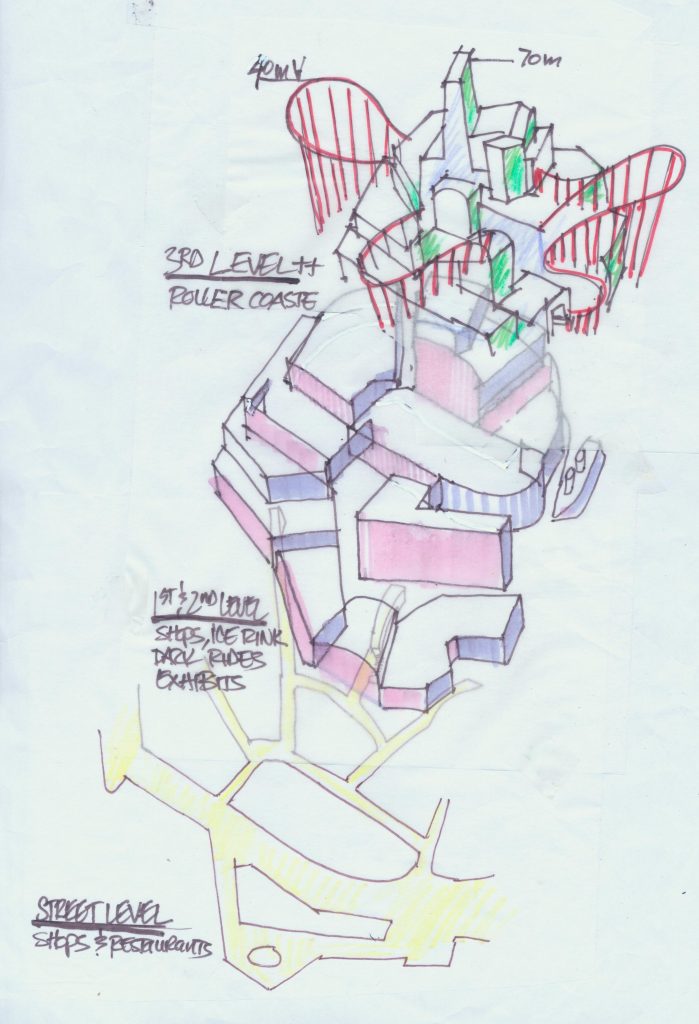 40m
70m
3RD LEVEL++
ROLLER COASTE
1ST & 2ND LEVEL
SHOPS, ICE RINK
DARK RIDES
EXHIBITS
STREET LEVEL
SHOPS & RESTAURANTS